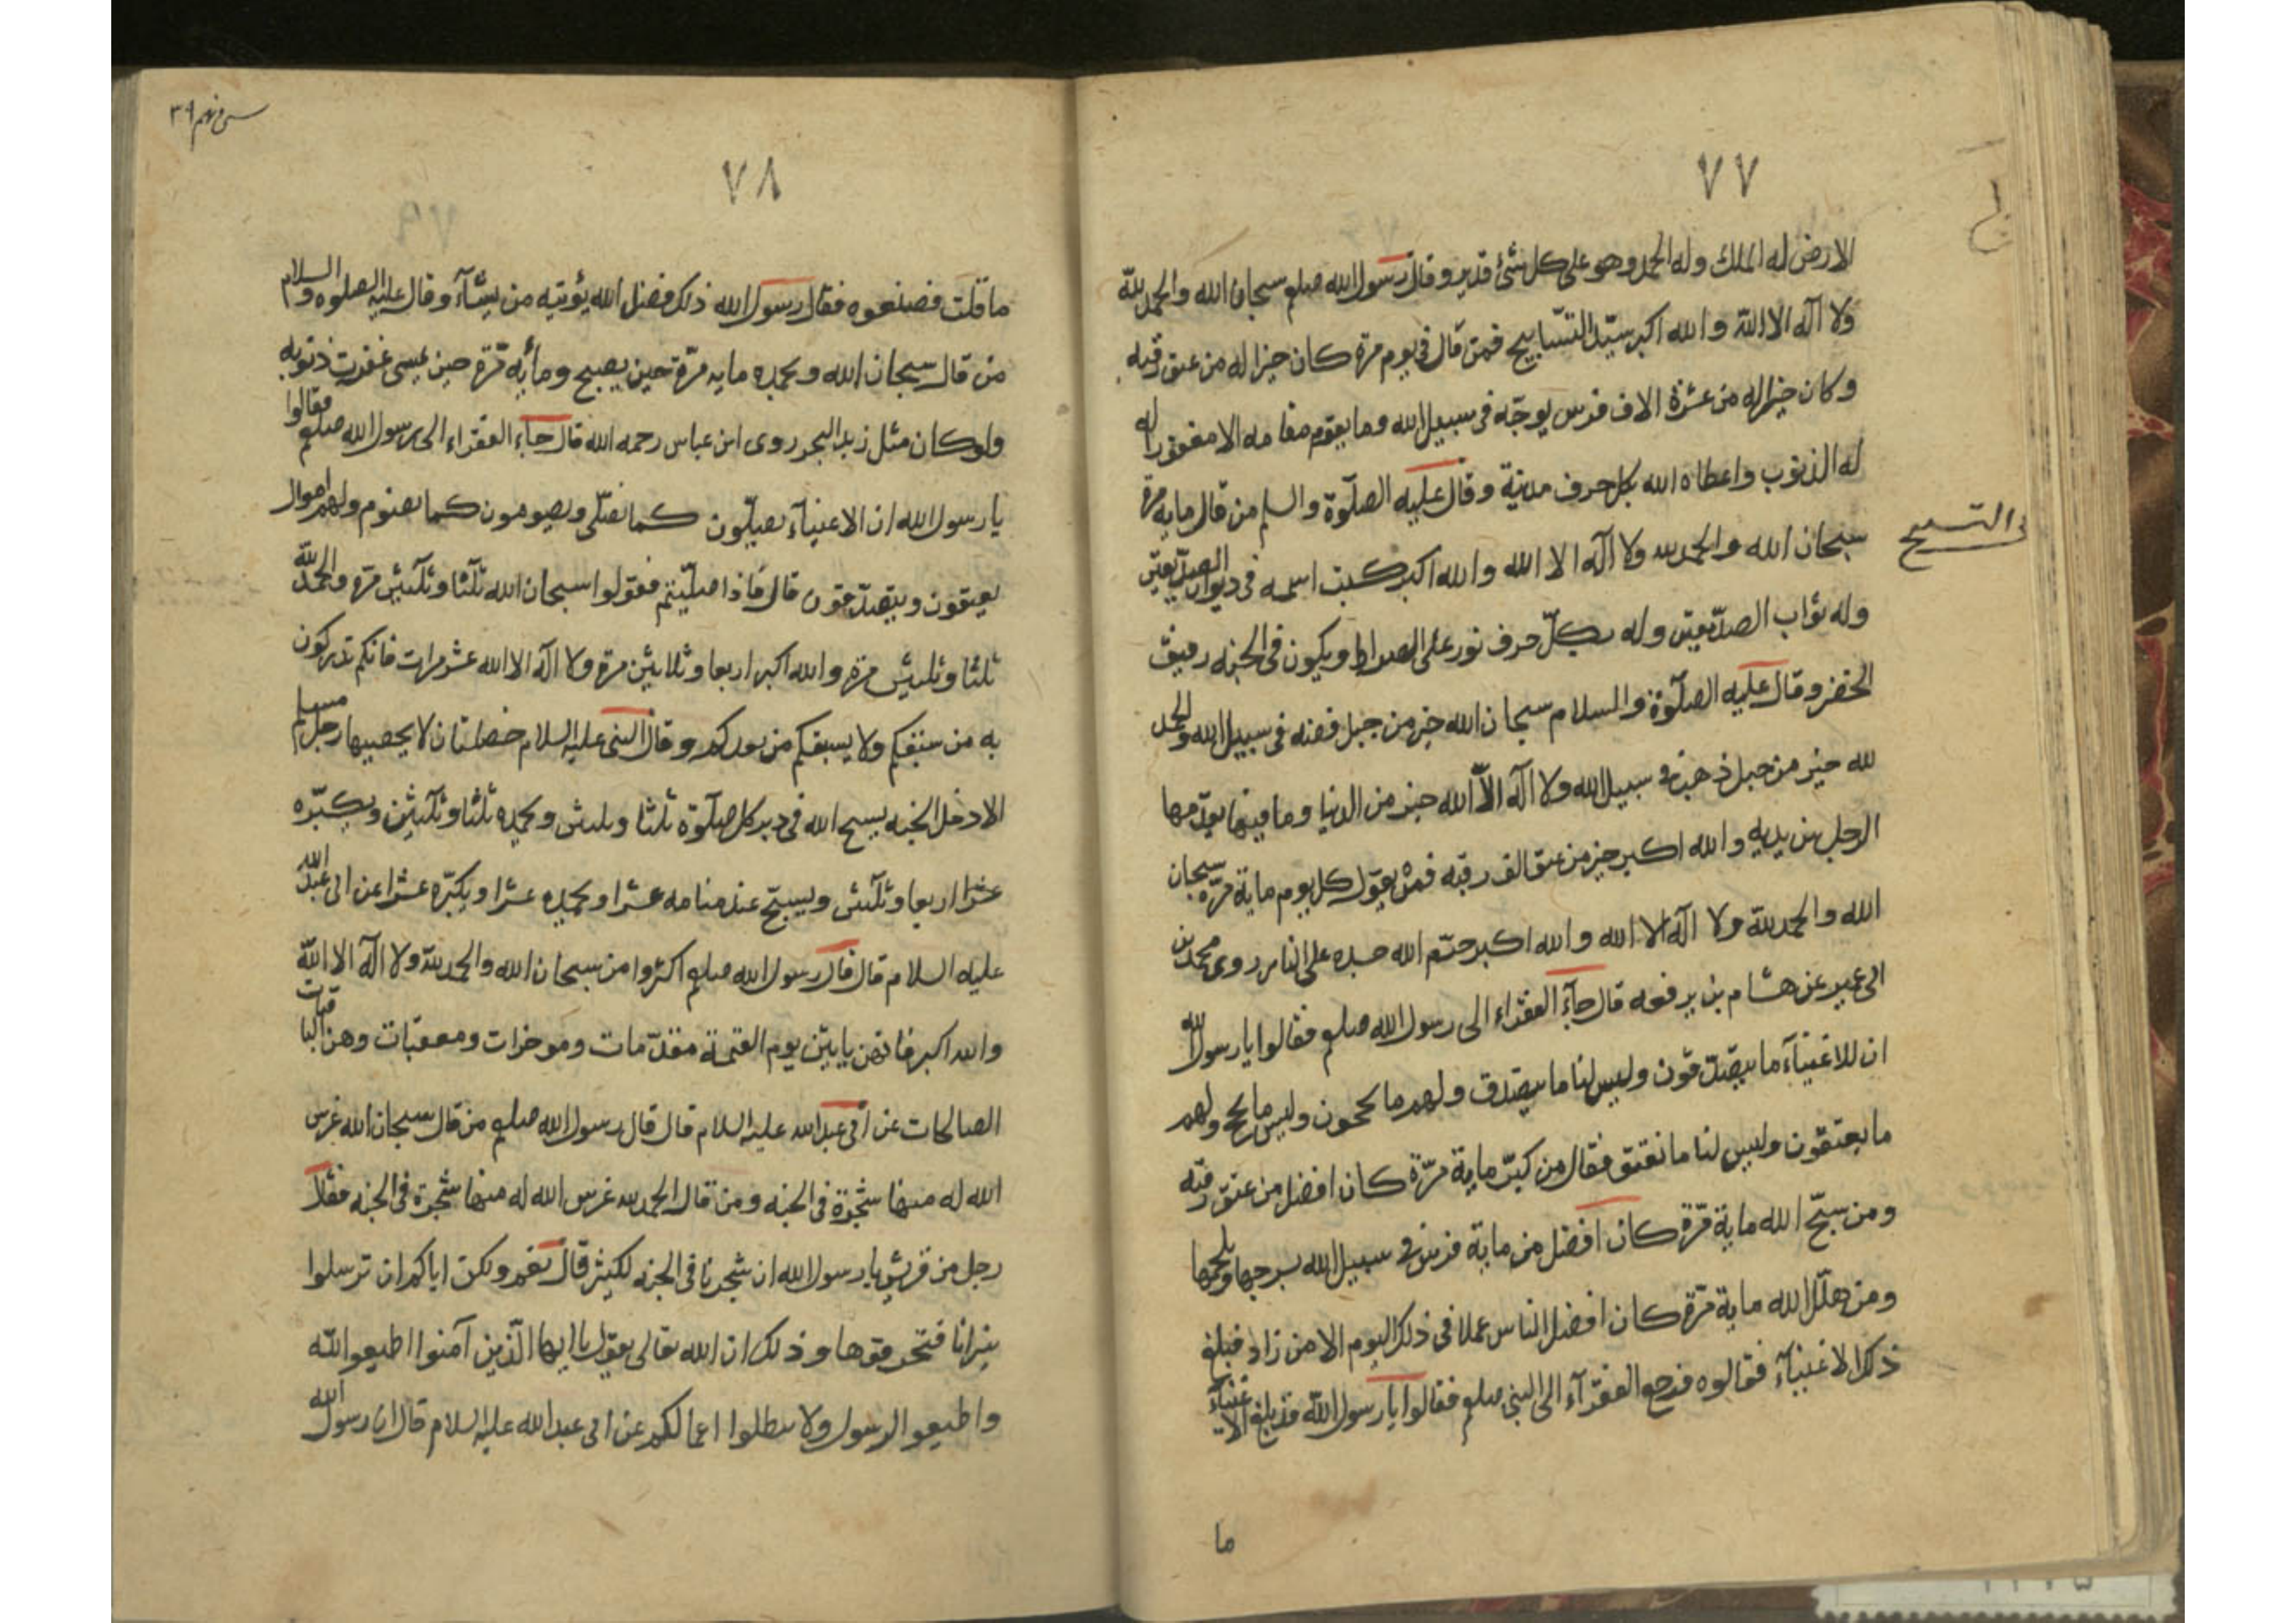 ٧٧
الارض له الملك وله الحمد وهو على كل شئ قدير وقال رسول الله صلعم سبحان الله والحمد لله
ولا اله الا الله والله اكبر سيّد التسّابيح فمن قال فى يوم مرة كان خيرا له من عتق رقبه
وكان خيرا له من عشرة الاف فرس يوجّه فى سبيل الله وما يقوم مقامه الا مغفورا له
له الذنوب واعطاه الله بكل حرف مدينة وقال عليه الصلوة والسلم من قال مايه مرة
فى التسبيح
سبحان الله والحمد لله ولا اله الا الله والله اكبر كتبت اسمه فى ديوان الصدّيقين
وله ثواب الصدّيقين وله بكلّ حرف نور على الصراط ويكون فى الجنه رفيق
الخضر وقال عليه الصلوة والسلام سبحان الله خير من جبل فضه فى سبيل الله والحمد
لله خير من جبل ذهب فى سبيل الله ولا اله الاّ الله خير من الدنيا وما فيها يقدّمها
الرجل بين يديه والله اكبر خير من عتق الف رقبه فمن يقول كل يوم ماية مرّة سبحان
الله والحمد لله ولا اله الا الله والله اكبر حرّم الله جسده على النار روى محمد بن
ابى عمير عن هشام بن يرفعه قال جآء الفقراء الى رسول الله صلعم فقالوا يا رسول الله
ان للاغنيآء ما يتصدّقون وليس لنا ما نتصدق ولهم ما يحجون وليس ما نحج ولهم
ما يعتقون وليس لنا ما نعتق فقال من كبّر ماية مرّة كان افضل من عتق رقبه
ومن سبّح الله ماية مرّة كان افضل من ماية فرس فى سبيل الله بسرجها ويلجمها
ومن هلّل الله ماية مرّة كان افضل الناس عملا فى ذلك اليوم الا من زاد فبلغ
ذلك الاغنيآء فقالوه فرجع الفقرآء الى النبى صلعم فقالوا يا رسول الله قد بلغ الاغنيآء
ما
٣٩
٧٨
ما قلت فصنعوه فقال رسول الله ذلك فضل الله يؤتيه من يشآء وقال عليه الصلوه والسلام
من قال سبحان الله وبحمده مايه مرّة حين يصبح ومأيه مرّة حين يمسى غفرت ذنوبه
ولو كان مثل زبد البحر روى ابن عباس رحمه الله قال جاء الفقراء الى رسول الله صلعم فقالوا
يا رسول الله ان الاغنيآء يصلّون كما نصلّى ويصومون كما نصوم ولهم اموال
يعتقون ويتصدّقون قال فاذا صلّيتم فقولوا سبحان الله ثلثا وثلثين مرة والحمد لله
ثلثا وثلثين مرة والله اكبر اربعا وثلاثين مرة ولا اله الا الله عشر مرات فانكم تدركون
به من سبقكم ولا يسبقكم من بعدكم وقال النبى عليه السلام خصلتان لا يحصيها رجل مسلم
الا دخل الجنه يسبح الله فى دبر كل صلوة ثلثا وثلثين ويحمده ثلثا وثلثين ويكبّره
عشرا اربعا وثلثين ويسبّح عند منامه عشرا ويحمده عشرا ويكبّره عشرا عن ابى عبد الله
عليه السلام قال قال رسول الله صلعم اكثروا من سبحان الله والحمد لله ولا اله الا الله
والله اكبر فانهن ياتين يوم القيمة مقدّمات وموخرات ومعقبات وهن الباقيات
الصالحات عن ابى عبد الله عليه السلام قال قال رسول الله صلعم من قال سبحان الله غرس
الله له منها شجرة فى الجنه ومن قال الحمد لله غرس الله له منها شجرة فى الجنه فقال
رجل من قريش يا رسول الله ان شجرنا فى الجنه لكثير قال نعم ولكن اياكم ان ترسلوا
نيرانا فتحرقوها وذلك ان الله تعالى يقول يا ايها الّذين آمنوا اطيعوا الله
واطيعوا الرسول ولا تبطلوا اعمالكم عن ابى عبد الله عليه السلام قال ان رسول الله